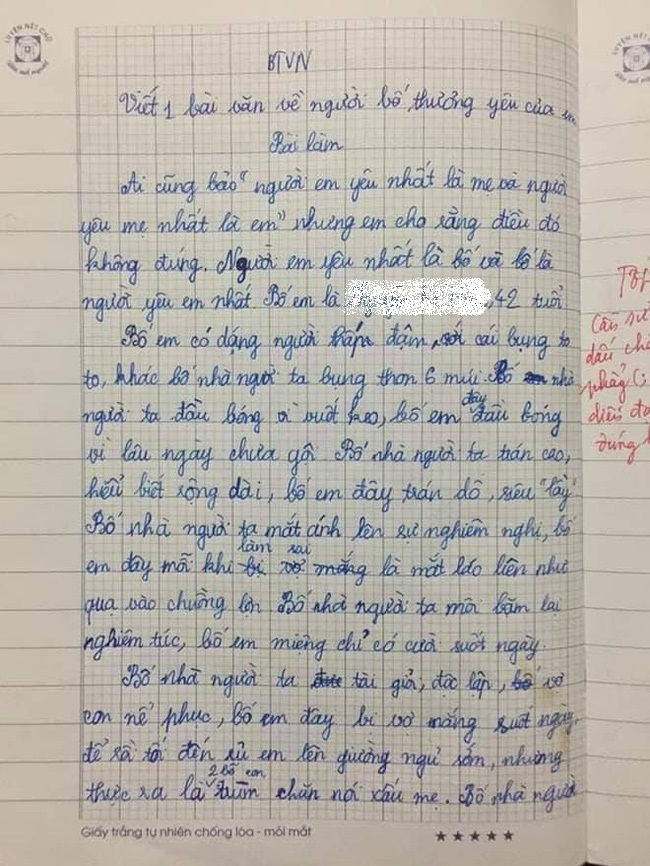 LUYỆN NÉT CHỮ
BTVN
Viết 1 bài văn về người bố thương yêu của em
Bài làm
Ai cũng bảo "người em yêu nhất là mẹ và người
yêu mẹ nhất là em" nhưng em cho rằng điều đó
không đúng. Người em yêu nhất là bố và bố là
người yêu em nhất. Bố em là , 42 tuổi
Bố em có dáng người thấp đậm, với cái bụng to
to, khác bố nhà người ta bụng thon 6 múi. Bố nhà
người ta đầu bóng vì vuốt keo, bố em đây đầu bóng
vì lâu ngày chưa gội. Bố nhà người ta trán cao,
hiểu biết rộng dài, bố em đây trán dô, siêu "lầy"
Bố nhà người ta mắt ánh lên sự nghiêm nghị, bố
em đây mỗi khi làm sai là mắt láo liên như
qua vào chuồng lợn Bố nhà người ta môi bặm lại
nghiêm túc, bố em miệng chỉ có cười suốt ngày.
Bố nhà người ta tài giỏi, độc lập, vợ
con nể phục, bố em đây bị vợ mắng suốt ngày,
để rồi tối đến rủ em lên giường ngủ sớm, nhưng
thực ra là 2 bố con trùm chăn nói xấu mẹ. Bố nhà người
Giấy trắng tự nhiên chống lóa - mỏi mắt